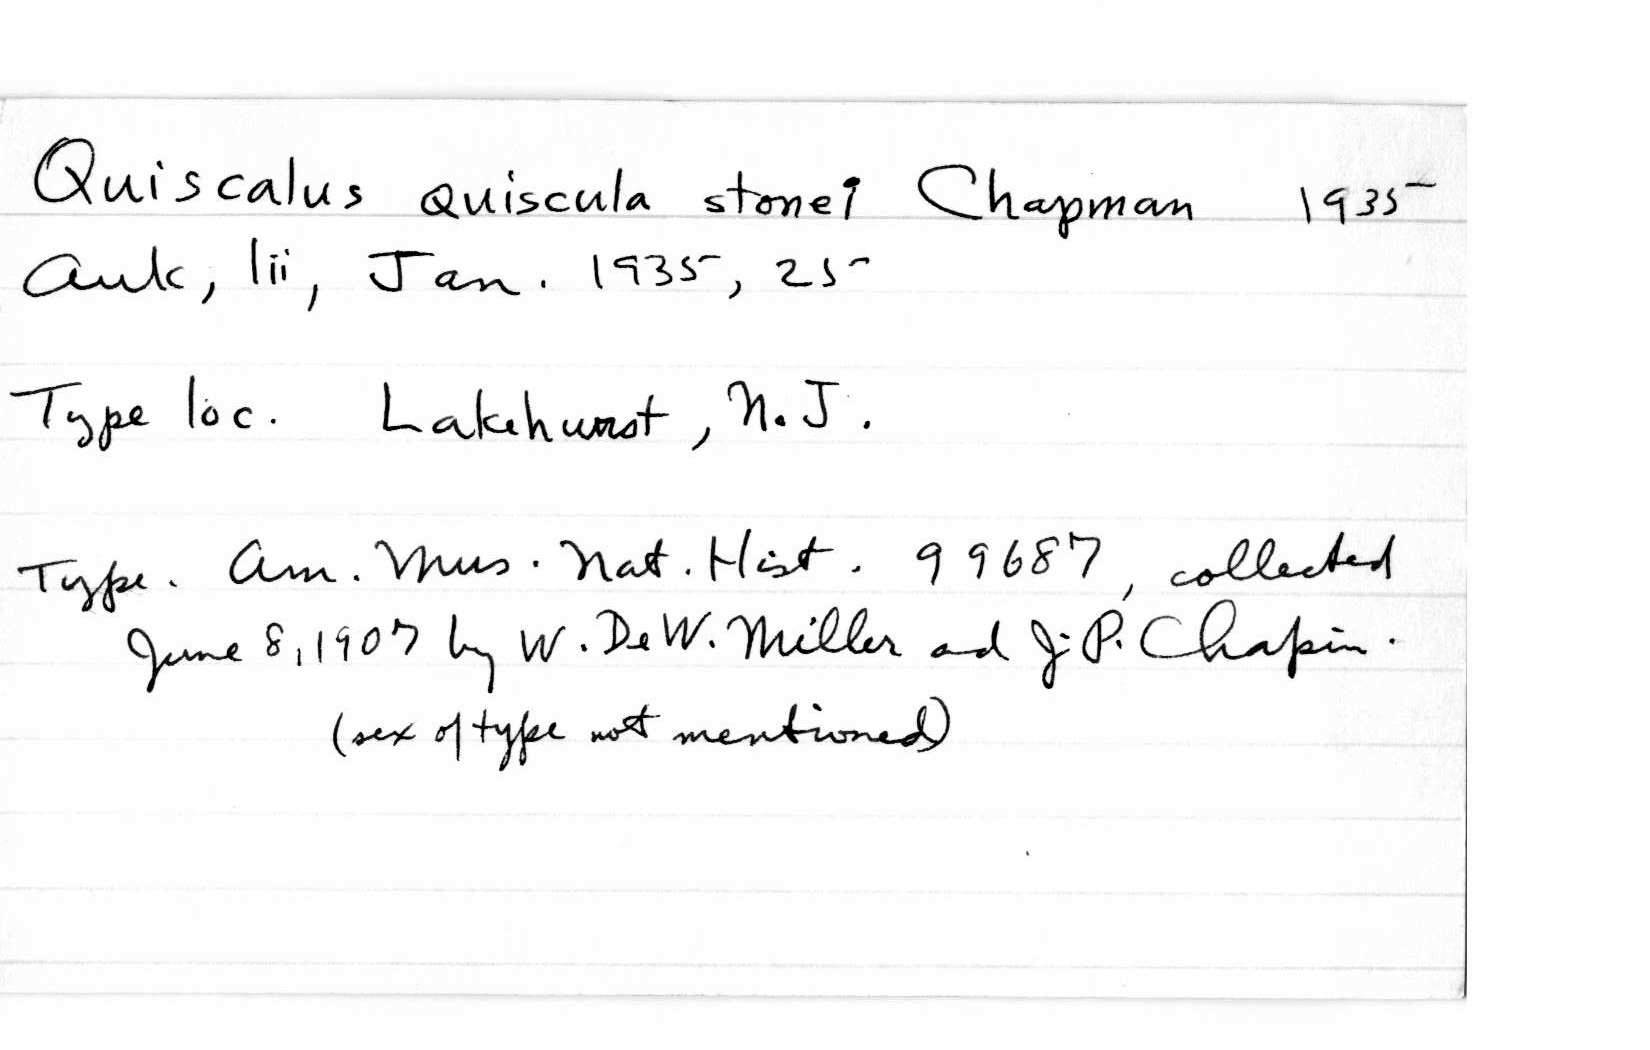 Quiscalus quiscula stonei Chapman 1935
Auk, lii, Jan. 1935, 25
Type loc. Lakehurst, N.J.
Type. Am. Mus. Nat. Hist. 99687, collected
June 8, 1907 by W. DeW. Miller and J. P. Chapin.
(sex of type not mentioned)